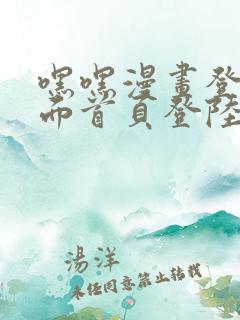 嘿嘿漫畫登
而首頁登陸
湯洋
未经同意禁止转载